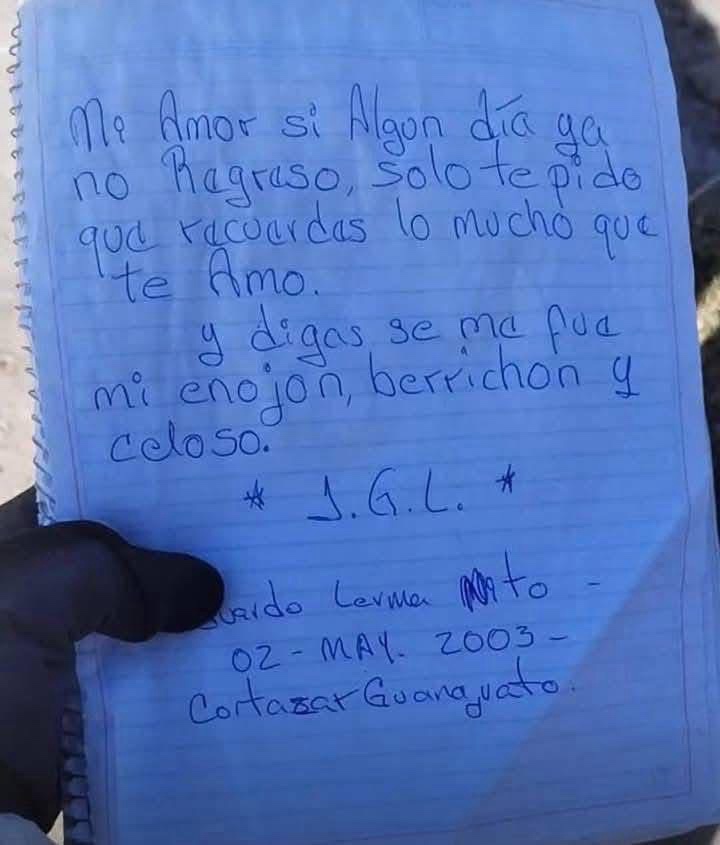 Mi Amor si Algon día ya
no Ragraso, solo te pido
qua racuardas lo mucho qua
te Amo.
y digas se ma fua
mi enojon, berrichon y
celoso.
* J.G.L. *
Lerma
02 - MAY. 2003 -
Cortazar Guanajuato.